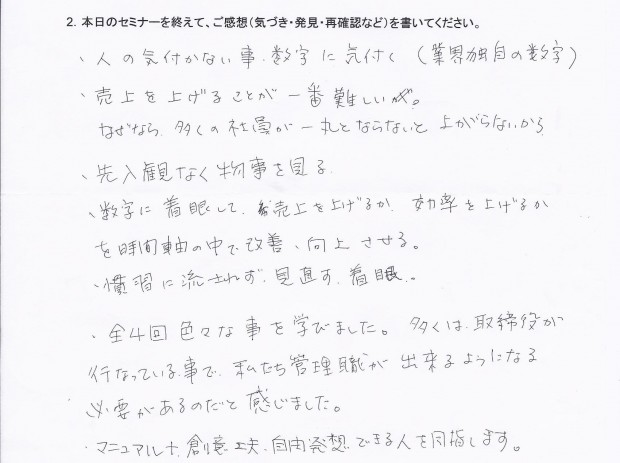 2. 本日のセミナーを終えて、ご感想（気づき・発見・再確認など）を書いてください。
・人の気付かない事・数字に気付く（業界独自の数字）
・売上を上げることが一番難しいが。
なぜなら、多くの社員が一丸とならないと上がらないから
・先入観なく物事を見る.
・数字に着眼して、売上を上げるか、効率を上げるか
を時間軸の中で改善、向上させる。
・慣習に流されず、見直す、着眼。
・全4回色々な事を学びました。多くは、取締役が
行なっている事で、私たち管理職が出来るようになる
必要があるのだと感じました。
・マニュアル＋、創意工夫、自由発想、できる人を目指します。